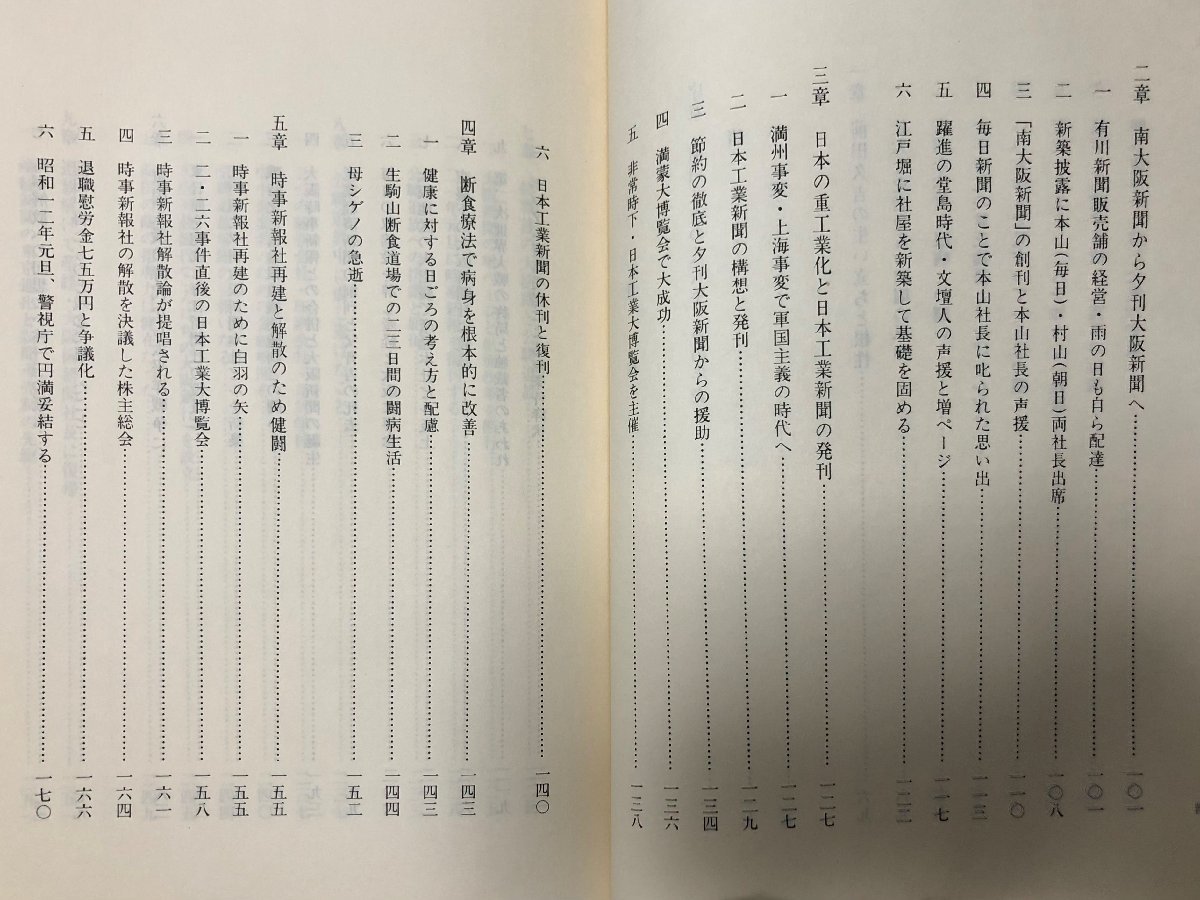 二章　南大阪新聞から夕刊大阪新聞へ…………一〇一
一　有川新聞販売舗の経営・雨の日も自ら配達…………一〇一
二　新築披露に本山(毎日)・村山(朝日)両社長出席…………一〇八
三　「南大阪新聞」の創刊と本山社長の声援…………一一〇
四　毎日新聞のことで本山社長に叱られた思い出…………一一三
五　躍進の堂島時代・文壇人の声援と増ページ…………一一七
六　江戸堀に社屋を新築して基礎を固める…………一二三
三章　日本の重工業化と日本工業新聞の発刊…………一二七
一　満州事変・上海事変で軍国主義の時代へ…………一二七
二　日本工業新聞の構想と発刊…………一二九
三　節約の徹底と夕刊大阪新聞からの援助…………一三四
四　満蒙大博覧会で大成功…………一三六
五　非常時下・日本工業大博覧会を主催…………一三八
六　日本工業新聞の休刊と復刊…………一四〇
四章　断食療法で病身を根本的に改善…………一四三
一　健康に対する日ごろの考え方と配慮…………一四三
二　生駒山断食道場での二三日間の闘病生活…………一四四
三　母シゲノの急逝…………一五二
五章　時事新報社再建と解散のため健闘…………一五五
一　時事新報社再建のために白羽の矢…………一五五
二　二・二六事件直後の日本工業大博覧会…………一五八
三　時事新報社解散論が提唱される…………一六一
四　時事新報社の解散を決議した株主総会…………一六四
五　退職慰労金七五万円と争議化…………一六六
六　昭和一二年元旦、警視庁で円満妥結する…………一七〇